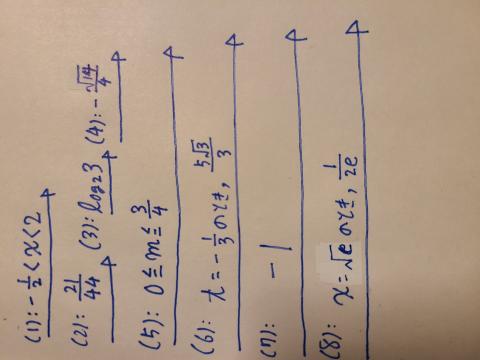 (1): -1/2 < x < 2
(2): 21/44 (3): log₂3 (4): -√14/4
(5): 0 ≦ m ≦ 3/4
(6): t = -1/3 のとき, 5√3/3
(7): -1
(8): x = √e のとき, 1/2e